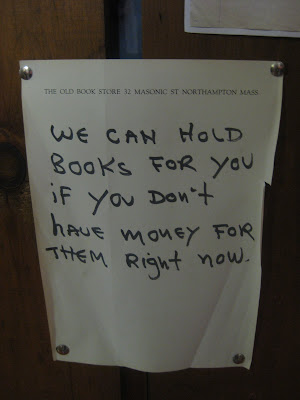 THE OLD BOOK STORE 32 MASONIC ST NORTHAMPTON MASS.
WE CAN HOLD
BOOKS FOR YOU
iF YOU DON't
HAVE MONEY FOR
THEM Right NOW.